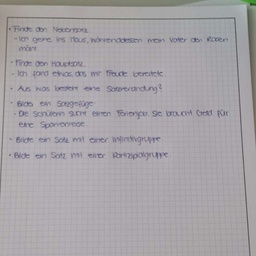 • Finde den Nebensatz.
- Ich gehe ins Haus, währenddessen mein Vater den Rasen
mäht.
• Finde den Hauptsatz.
- Ich fand etwas, das mir Freude bereitete.
• Aus was besteht eine Satzverbindung?
• Bilde ein Satzgefüge
- Die Schülerin sucht einen Ferienjob. Sie braucht Geld für
eine Spanienreise.
• Bilde ein Satz mit einer Infinitivgruppe
• Bilde ein Satz mit einer Partizipialgruppe